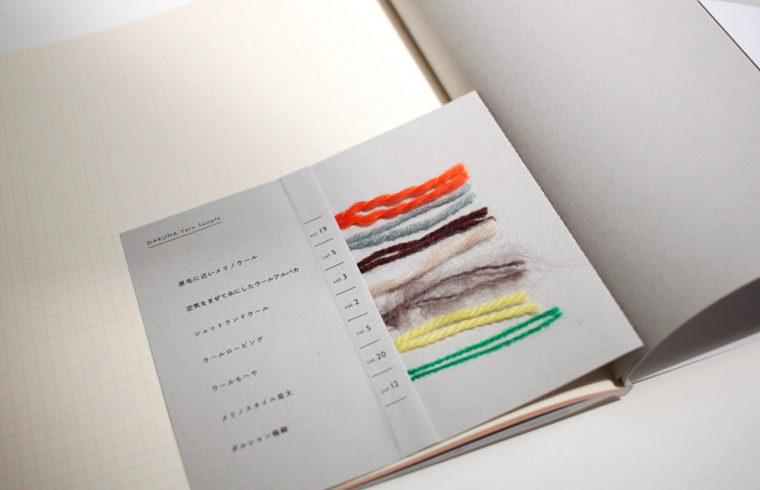 DARUMA Yarn Sample
原毛に近いメリノウール
空気をまぜて糸にしたウールアルパカ
シェットランドウール
ウールロービング
ウールモヘヤ
メリノスタイル並太
ダルシャン極細
col.19
col.5
col.3
col.2
col.5
col.20
col.12